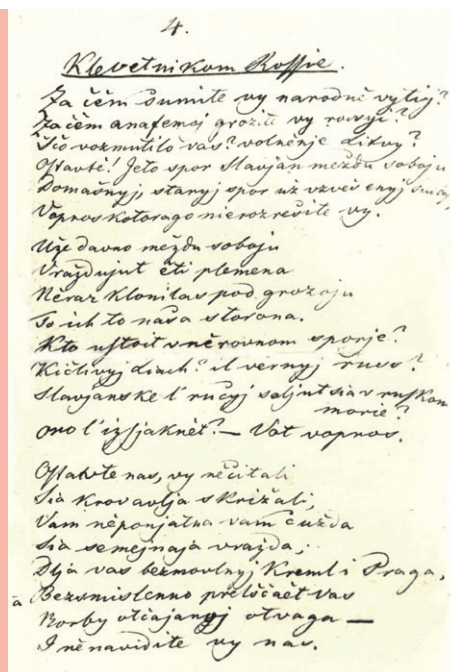 4.
Klevetnikom Rossie.
Za čěm šumite vy narodně vytij?
Začěm anafemoj grozite vy rossyi?
Što vozmutilo vas? volněnje Litvy?
Ostavtě! Jeto spor Slavjan meždu soboju
Domašnyj, staryj spor už vzvěšenyj
Vopros kotorago nierozrešite vy.
Uže davno meždu soboju
Vraždujut ěti plemena
Něraz klonilas pod grozoju
To ich to naša storona.
Kto ustoit v něrovnom sporje?
Kičlivyj Liach? il věrnyj russ?
Slavjanske l'ručyj soljutsia v russkom
morie?
ono l'izsjaknět? — Vot vopros.
Ostavte nas, vy něčitali
Sia krovavlja skrižali,
Vam něponjatna vam čužda
Sia semejnaja vražda;
Dlja vas bezmovlnyj Kreml i Praga,
a Bezsmislenno prělščaět vas
Borby otčajanyj otvaga —
I něnavidite vy nas.